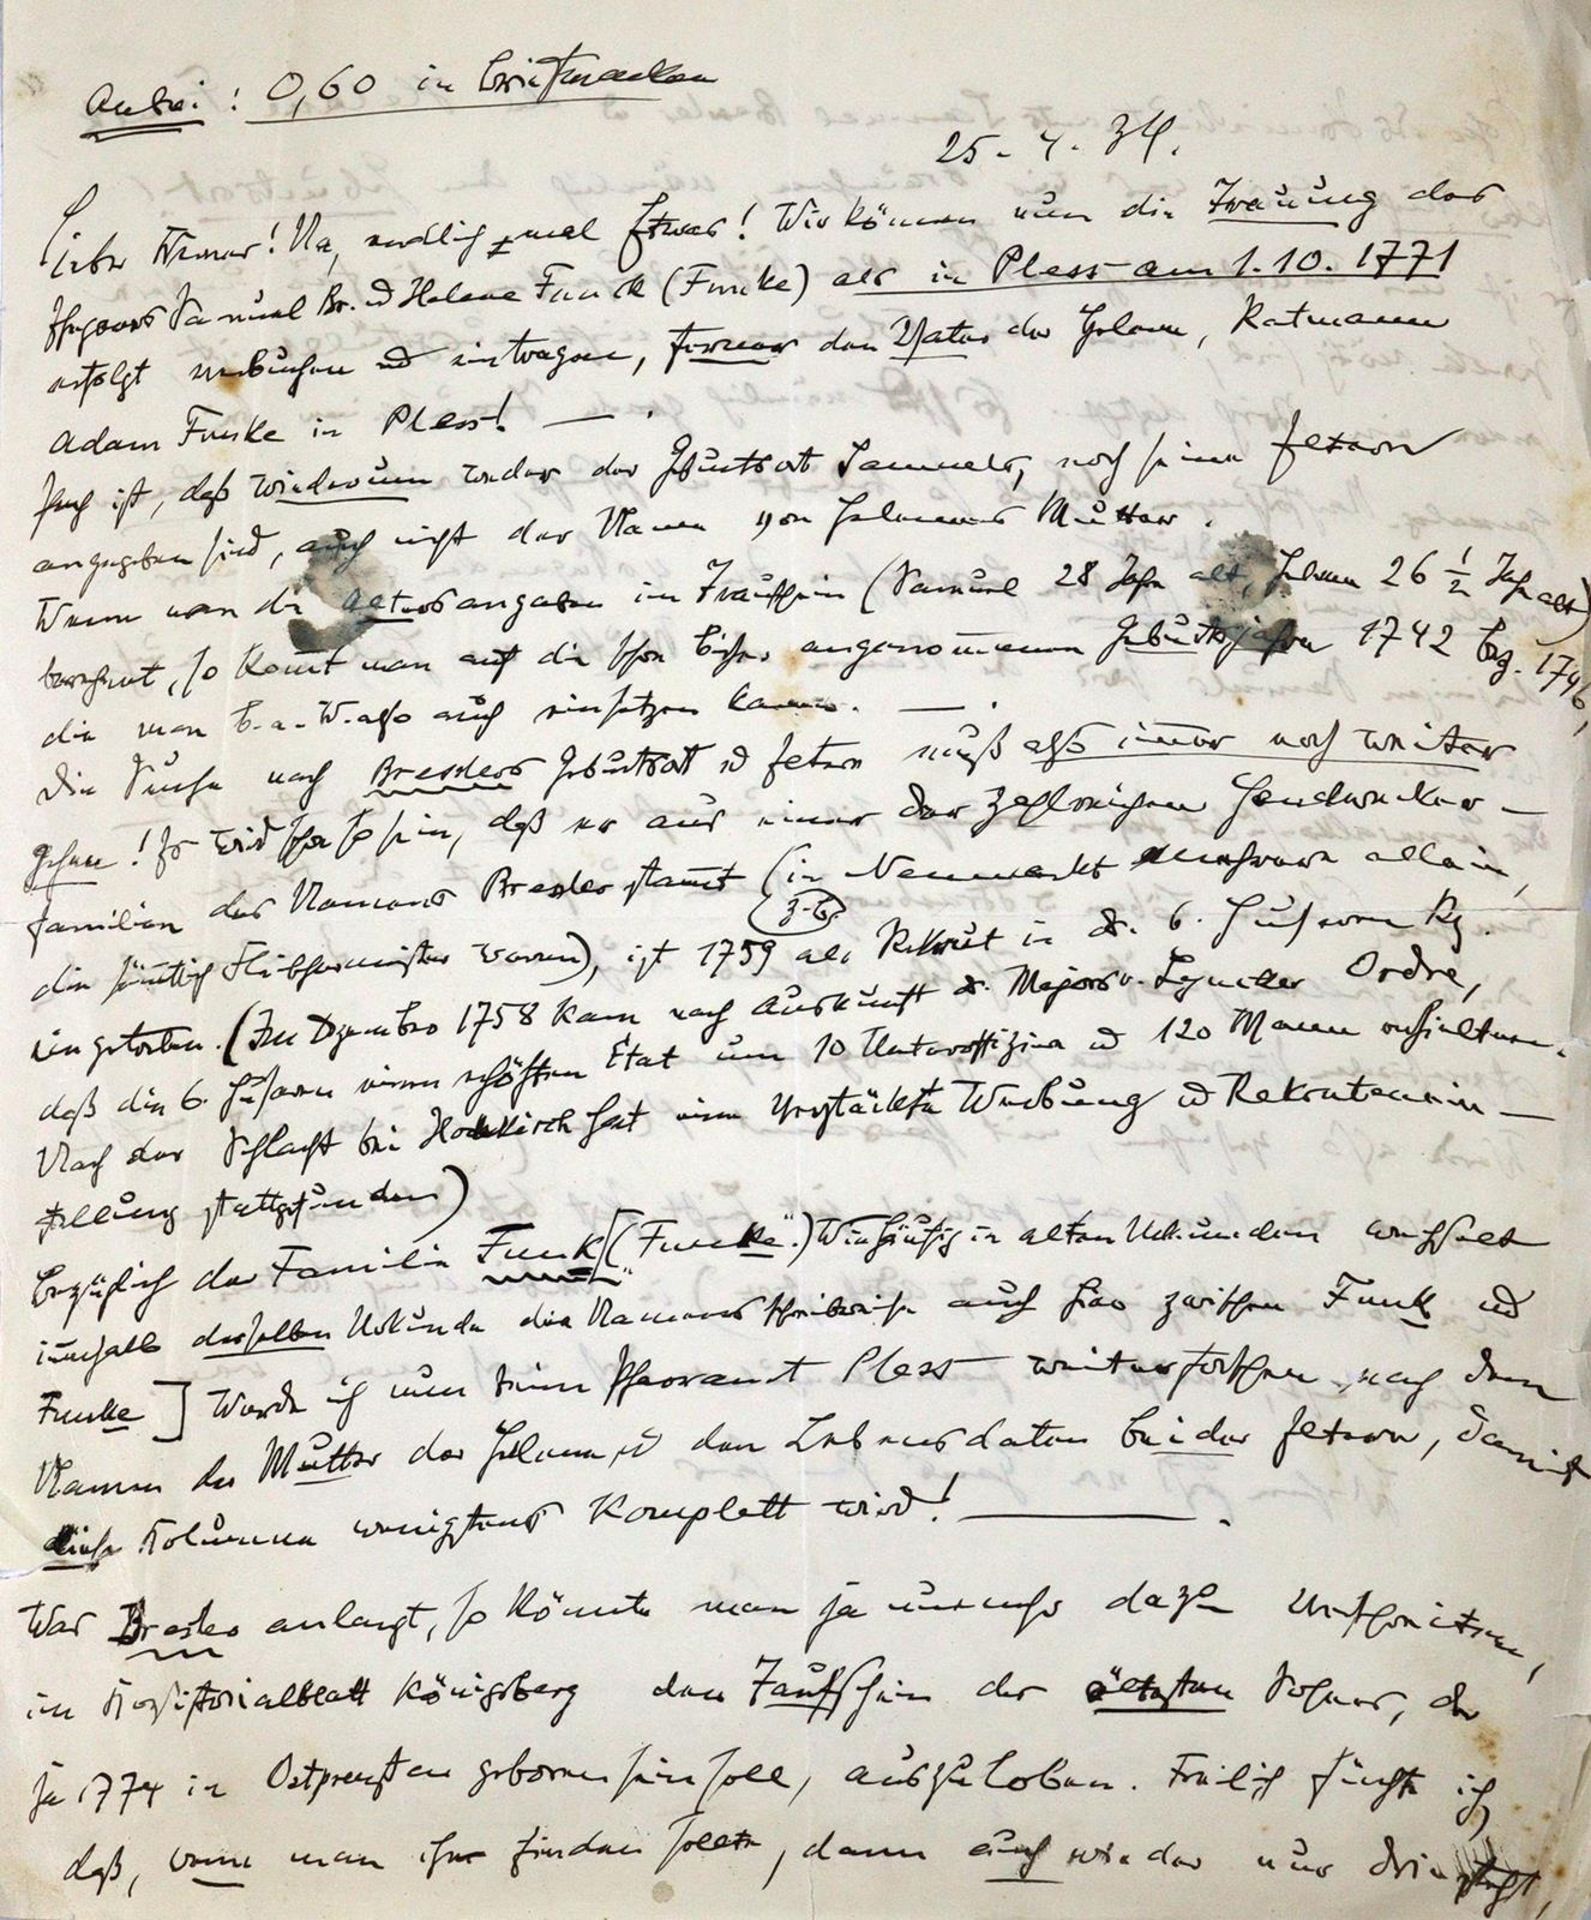 Anbei: 0,60 in Briefmarken
25. 4. 34.
Lieber Werner! Na, endlich mal Etwas! Wir können nun die Trauung des
Ehepaars Samuel Br. u Helene Funck (Funke) als in Pless am 1.10.1771
erfolgt verbuchen ud eintragen, ferner den Vater der Helene, Ratmann
Adam Funke in Pless! — .
Pech ist, daß wiederum weder der Geburtsort Samuels, noch seine Eltern
angegeben sind, auch nicht der Name von Helenens Mutter.
Wenn man die Altersangaben im Trauschein (Samuel 28 Jahre alt, Helene 26 ½ Jahr alt)
berechnet, so kom̅t man auf die schon bisher angenom̅enen Geburtsjahre 1742 bez. 1746,
die man b.a.W. also auch einsetzen kann. — .
Die Suche nach Breslers Geburtsort ud Eltern muß also im̅er noch weiter
gehen! Es wird schon so sein, daß er aus einer der zahlreichen Handwerker-
familien des Namens Bresler stam̅t (in Neumarkt mehrere allein,
die sämtlich Fleischermeister waren), ist 1759 (z.B.) als Rekrut in d. 6. Husaren Rg.
eingetreten. (Im Dezember 1758 kam nach Auskunft d. Majors v. Lyncker Ordre,
daß die 6. Husaren einen erhöhten Etat um 10 Unteroffiziere ud 120 Mann erhielten.
Nach der Schlacht bei Hochkirch hat eine verstärkte Werbung ud Rekruten ein-
stellung stattgefunden)
Bezüglich der Familie Funk [("Funcke".) Wie häufig in alten Urkunden wechselt
in̅erhalb derselben Urkunde die Namensschreibweise auch hier zwischen Funk ud
Funke] werde ich nun beim Pfarramt Pless weiterforschen nach dem
Namen der Mutter der Helene, ud den Lebensdaten beider Eltern, damit
diese Kolumne wenigstens komplett wird! — .
Was Bresler anlangt, so könnte man ja nunmehr dazu verschreiten,
im Konsistorialblatt Königsberg den Taufschein des ältesten Sohnes, der
ja 1774 in Ostpreußen geboren sein soll, auszuloben. Freilich fürchte ich,
daß, wenn man ihn finden sollte, dann auch wieder nur drin steht,